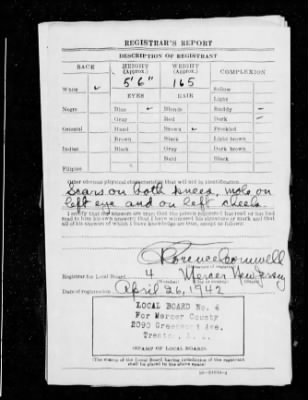 REGISTRAR'S REPORT
DESCRIPTION OF REGISTRANT
RACE HEIGHT (Approx.) WEIGHT (Approx.) COMPLEXION
5' 6" 165
White ✓ Sallow
EYES HAIR Light
Negro Blue ✓ Blonde Ruddy ✓
Gray Red Dark
Oriental Hazel Brown ✓ Freckled
Brown Black Light brown
Indian Black Gray Dark brown
Bald Black
Filipino
Other obvious physical characteristics that will aid in identification
Scars on both knees, mole on
left eye and on left cheek.
I certify that my answers are true; that the person registered has read or has had
read to him his own answers; that I have witnessed his signature or mark and that
all of his answers of which I have knowledge are true, except as follows:
Florence Cornwell
Registrar for Local Board 4 Mercer New Jersey
Date of registration April 26, 1942
LOCAL BOARD No. 4
For Mercer County
2090 Greenwood Ave.
Trenton, N. J.
(STAMP OF LOCAL BOARD)
(The stamp of the Local Board having jurisdiction of the registrant
shall be placed in the above space)